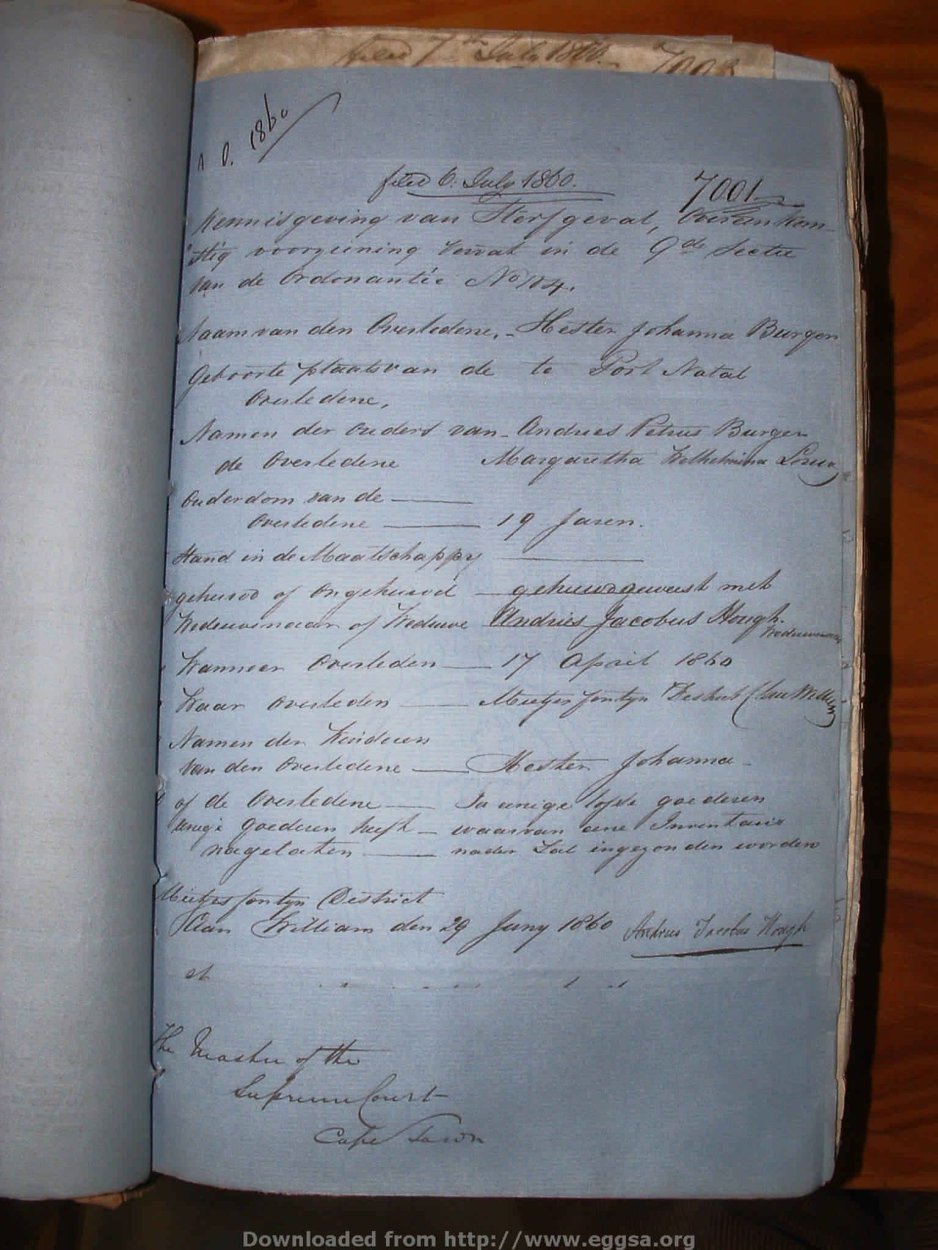 filed 7th July 1860 7003
A 0. 1860
filed 6. July 1860. 7001
Kennisgeving van Sterfgeval, Overeenkom-
stig voorziening vervat in de 9de Sectie
van de Ordonantie No 104.
Naam van den Overledene, - Hester Johanna Burger
Geboorte plaats van de te Port Natal
Overledene,
Namen der Ouders van - Andries Petrus Burger
de Overledene Margaretha Wilhelmina Louw
Ouderdom van de
Overledene 19 Jaren.
Stand in de Maatschappy
gehuwd of Ongehuwd gehuwd geweest met
Weduwenaar of Weduwe Andries Jacobus Hough Weduwenaar
Wanneer Overleden 17 April 1860
Waar Overleden Mietjesfontyn District Clan William
Namen der Kinderen
van den Overledene Hester Johanna
of de Overledene Ja eenige losse goederen
eenige goederen heeft - waarvan eene Inventaris
nagelaten nader zal ingezonden worden
Mietjesfontyn District
Clan William den 29 Juny 1860 Andries Jacobus Hough
The Master of the
Supreme Court
Cape Town
Downloaded from http://www.eggsa.org